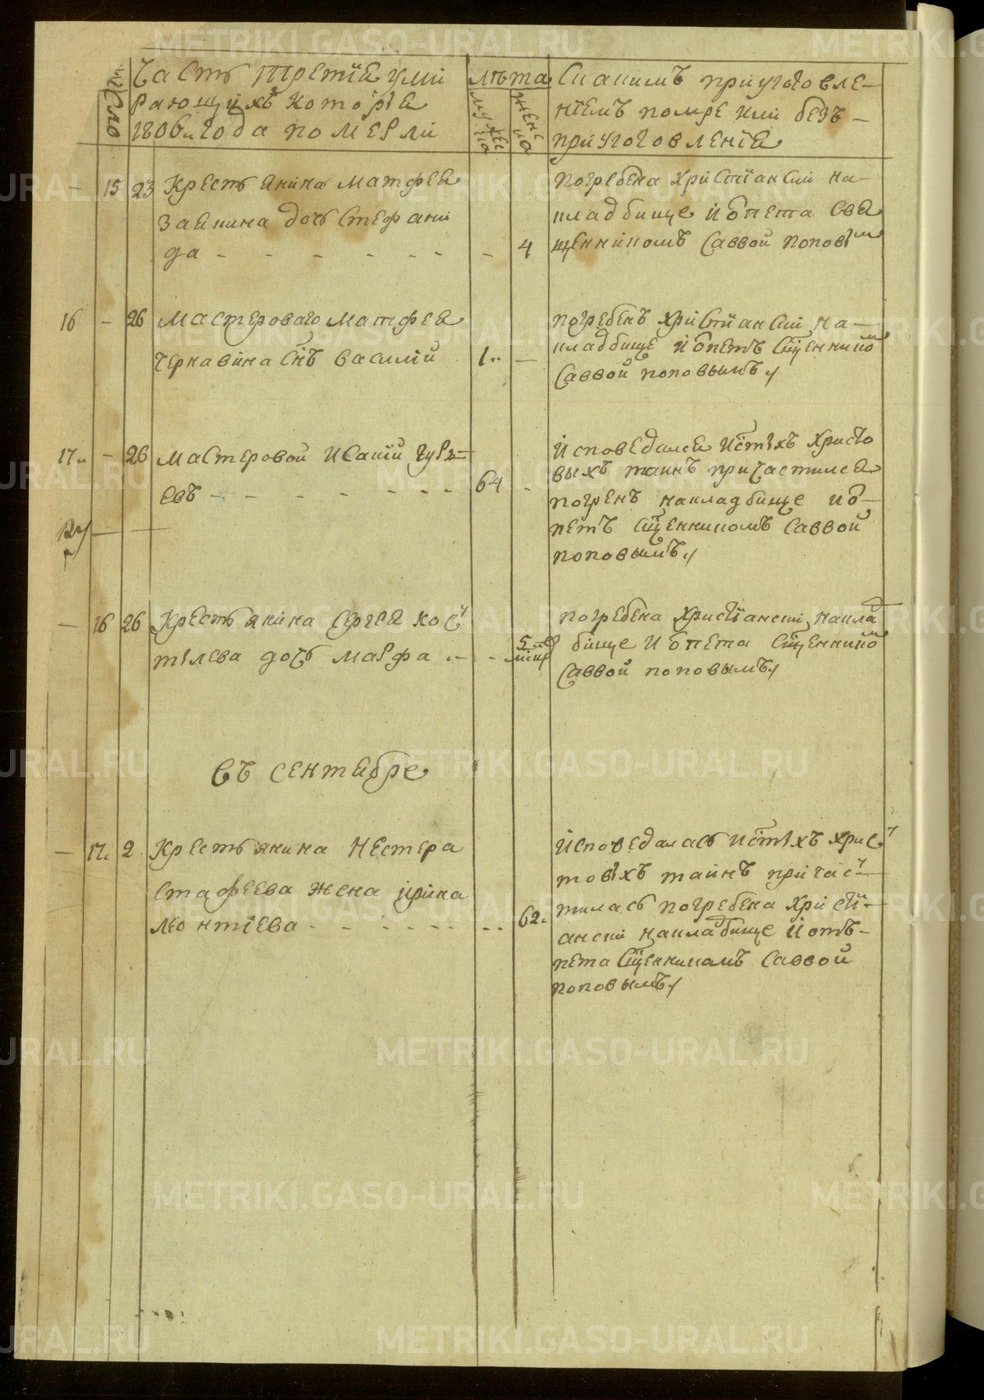 Число
Часть третїя уми
рающихъ которїе
1806 года померли
Лѣта
мужеска
женска
Снакимъ приуготовле-
нїемъ помре или безъ
приуготовленїя
15 23 Крестьянина Матфея
Заикина дочь Стефани
да - - - - - - - 4
погребена христїански на
кладбище и опета свя
щенникомъ Саввой Поповїм
16 - 26 Мастероваго Матфея
Чернавина снъ Василїй 1 -
погребенъ христїански на
кладбище и опетъ сщеннико
Саввой Поповымъ
17 - 26 Мастеровой Исакїй
евъ - - - - - - - 64 -
исповедался и стыхъ христо
выхъ таинъ причастился
погренъ накладбище и о-
петъ сщенникомъ Саввой
Поповымъ
- 16 26 Крестьянина Сергея Кос
тылева дочь Марфа - - 5 мцы
погребена христїански накла
бище и опета сщеннико
Саввой Поповымъ
Въ Сентябре
- 17 2 Крестьянина Нестера
Стафеева жена Ирина
Леонтїева - - - - - - 62
исповедалась и стыхъ Хрис
товыхъ таинъ причас
тилась погребена христї-
ански накладбище и отъ-
пета сщенникомъ Саввой
Поповымъ
METRIKI.GASO-URAL.RU